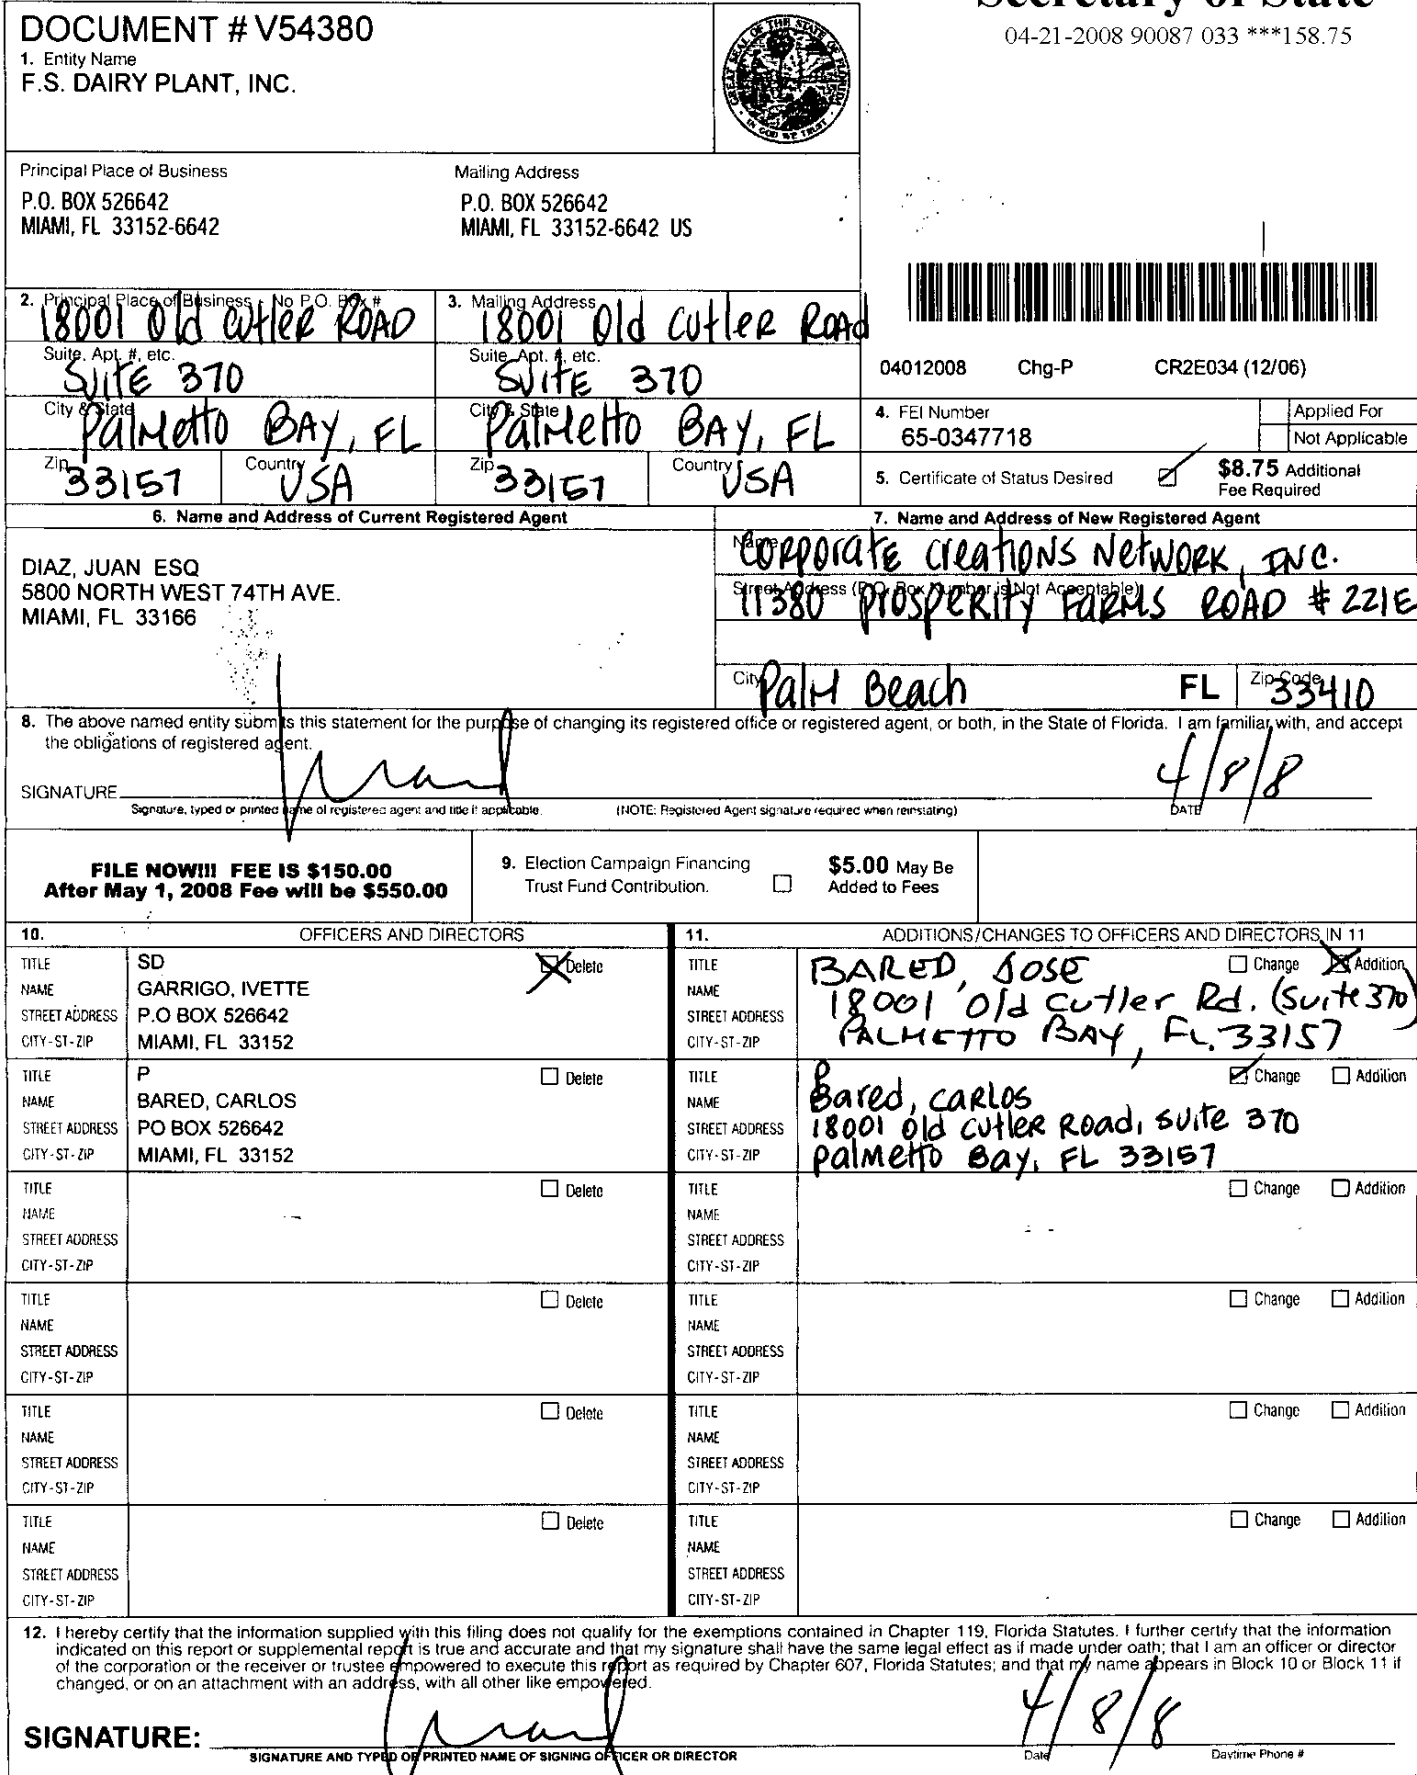 Secretary of State
04-21-2008 90087 033 ***158.75
DOCUMENT # V54380
1. Entity Name
F.S. DAIRY PLANT, INC.
GREAT SEAL OF THE STATE OF FLORIDA
IN GOD WE TRUST
Principal Place of Business
P.O. BOX 526642
MIAMI, FL 33152-6642
Mailing Address
P.O. BOX 526642
MIAMI, FL 33152-6642 US
2. Principal Place of Business - No P.O. Box #
18001 Old Cutler ROAD
Suite, Apt. #, etc.
SUITE 370
City & State
Palmetto BAY, FL
Zip
33157
Country
USA
3. Mailing Address
18001 Old Cutler Road
Suite, Apt. #, etc.
SUITE 370
City & State
Palmetto BAY, FL
Zip
33157
Country
USA
04012008 Chg-P CR2E034 (12/06)
4. FEI Number
65-0347718
Applied For
Not Applicable
5. Certificate of Status Desired
$8.75 Additional
Fee Required
6. Name and Address of Current Registered Agent
DIAZ, JUAN ESQ
5800 NORTH WEST 74TH AVE.
MIAMI, FL 33166
7. Name and Address of New Registered Agent
Name
Corporate Creations Network, INC.
Street Address (P.O. Box Number is Not Acceptable)
11380 Prosperity Farms ROAD # 221E
City
Palm Beach
FL
Zip Code
33410
8. The above named entity submits this statement for the purpose of changing its registered office or registered agent, or both, in the State of Florida. I am familiar with, and accept
the obligations of registered agent.
SIGNATURE
4/8/8
Signature, typed or printed name of registered agent and title if applicable.
(NOTE: Registered Agent signature required when reinstating)
DATE
FILE NOW!!! FEE IS $150.00
After May 1, 2008 Fee will be $550.00
9. Election Campaign Financing
Trust Fund Contribution.
$5.00 May Be
Added to Fees
10. OFFICERS AND DIRECTORS
TITLE SD Delete
NAME GARRIGO, IVETTE
STREET ADDRESS P.O BOX 526642
CITY-ST-ZIP MIAMI, FL 33152
TITLE P Delete
NAME BARED, CARLOS
STREET ADDRESS PO BOX 526642
CITY-ST-ZIP MIAMI, FL 33152
TITLE Delete
NAME
STREET ADDRESS
CITY-ST-ZIP
TITLE Delete
NAME
STREET ADDRESS
CITY-ST-ZIP
TITLE Delete
NAME
STREET ADDRESS
CITY-ST-ZIP
TITLE Delete
NAME
STREET ADDRESS
CITY-ST-ZIP
11. ADDITIONS/CHANGES TO OFFICERS AND DIRECTORS IN 11
TITLE BARED, JOSE Change Addition
NAME 18001 Old Cutler Rd. (Suite 370)
STREET ADDRESS PALMETTO BAY, FL. 33157
CITY-ST-ZIP
TITLE P Change Addition
NAME Bared, CARLOS
STREET ADDRESS 18001 Old Cutler Road, Suite 370
CITY-ST-ZIP Palmetto Bay, FL 33157
TITLE Change Addition
NAME
STREET ADDRESS
CITY-ST-ZIP
TITLE Change Addition
NAME
STREET ADDRESS
CITY-ST-ZIP
TITLE Change Addition
NAME
STREET ADDRESS
CITY-ST-ZIP
TITLE Change Addition
NAME
STREET ADDRESS
CITY-ST-ZIP
12. I hereby certify that the information supplied with this filing does not qualify for the exemptions contained in Chapter 119, Florida Statutes. I further certify that the information
indicated on this report or supplemental report is true and accurate and that my signature shall have the same legal effect as if made under oath; that I am an officer or director
of the corporation or the receiver or trustee empowered to execute this report as required by Chapter 607, Florida Statutes; and that my name appears in Block 10 or Block 11 if
changed, or on an attachment with an address, with all other like empowered.
SIGNATURE:
4/8/8
SIGNATURE AND TYPED OR PRINTED NAME OF SIGNING OFFICER OR DIRECTOR
Date
Daytime Phone #